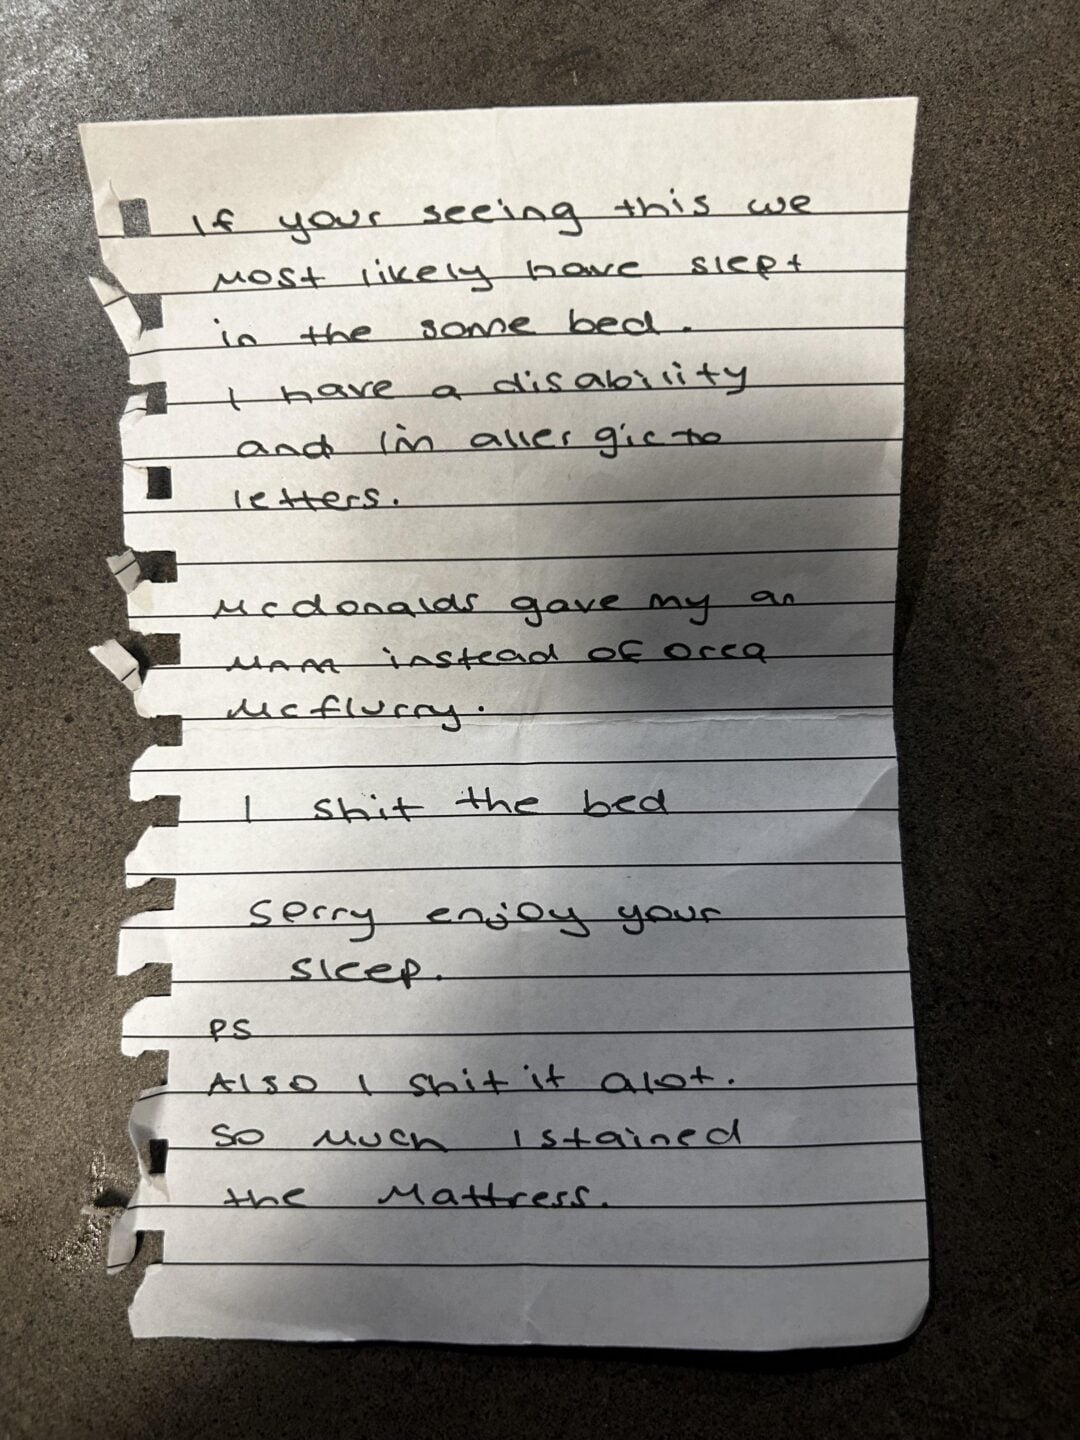 If your seeing this we
most likely have slept
in the same bed.
I have a disability
and I'm allergic to
letters.
Mcdonalds gave my an
MnM instead of oreo
Mcflurry.
I shit the bed
Sorry enjoy your
sleep.
PS
Also I shit it alot.
So much I stained
the Mattress.